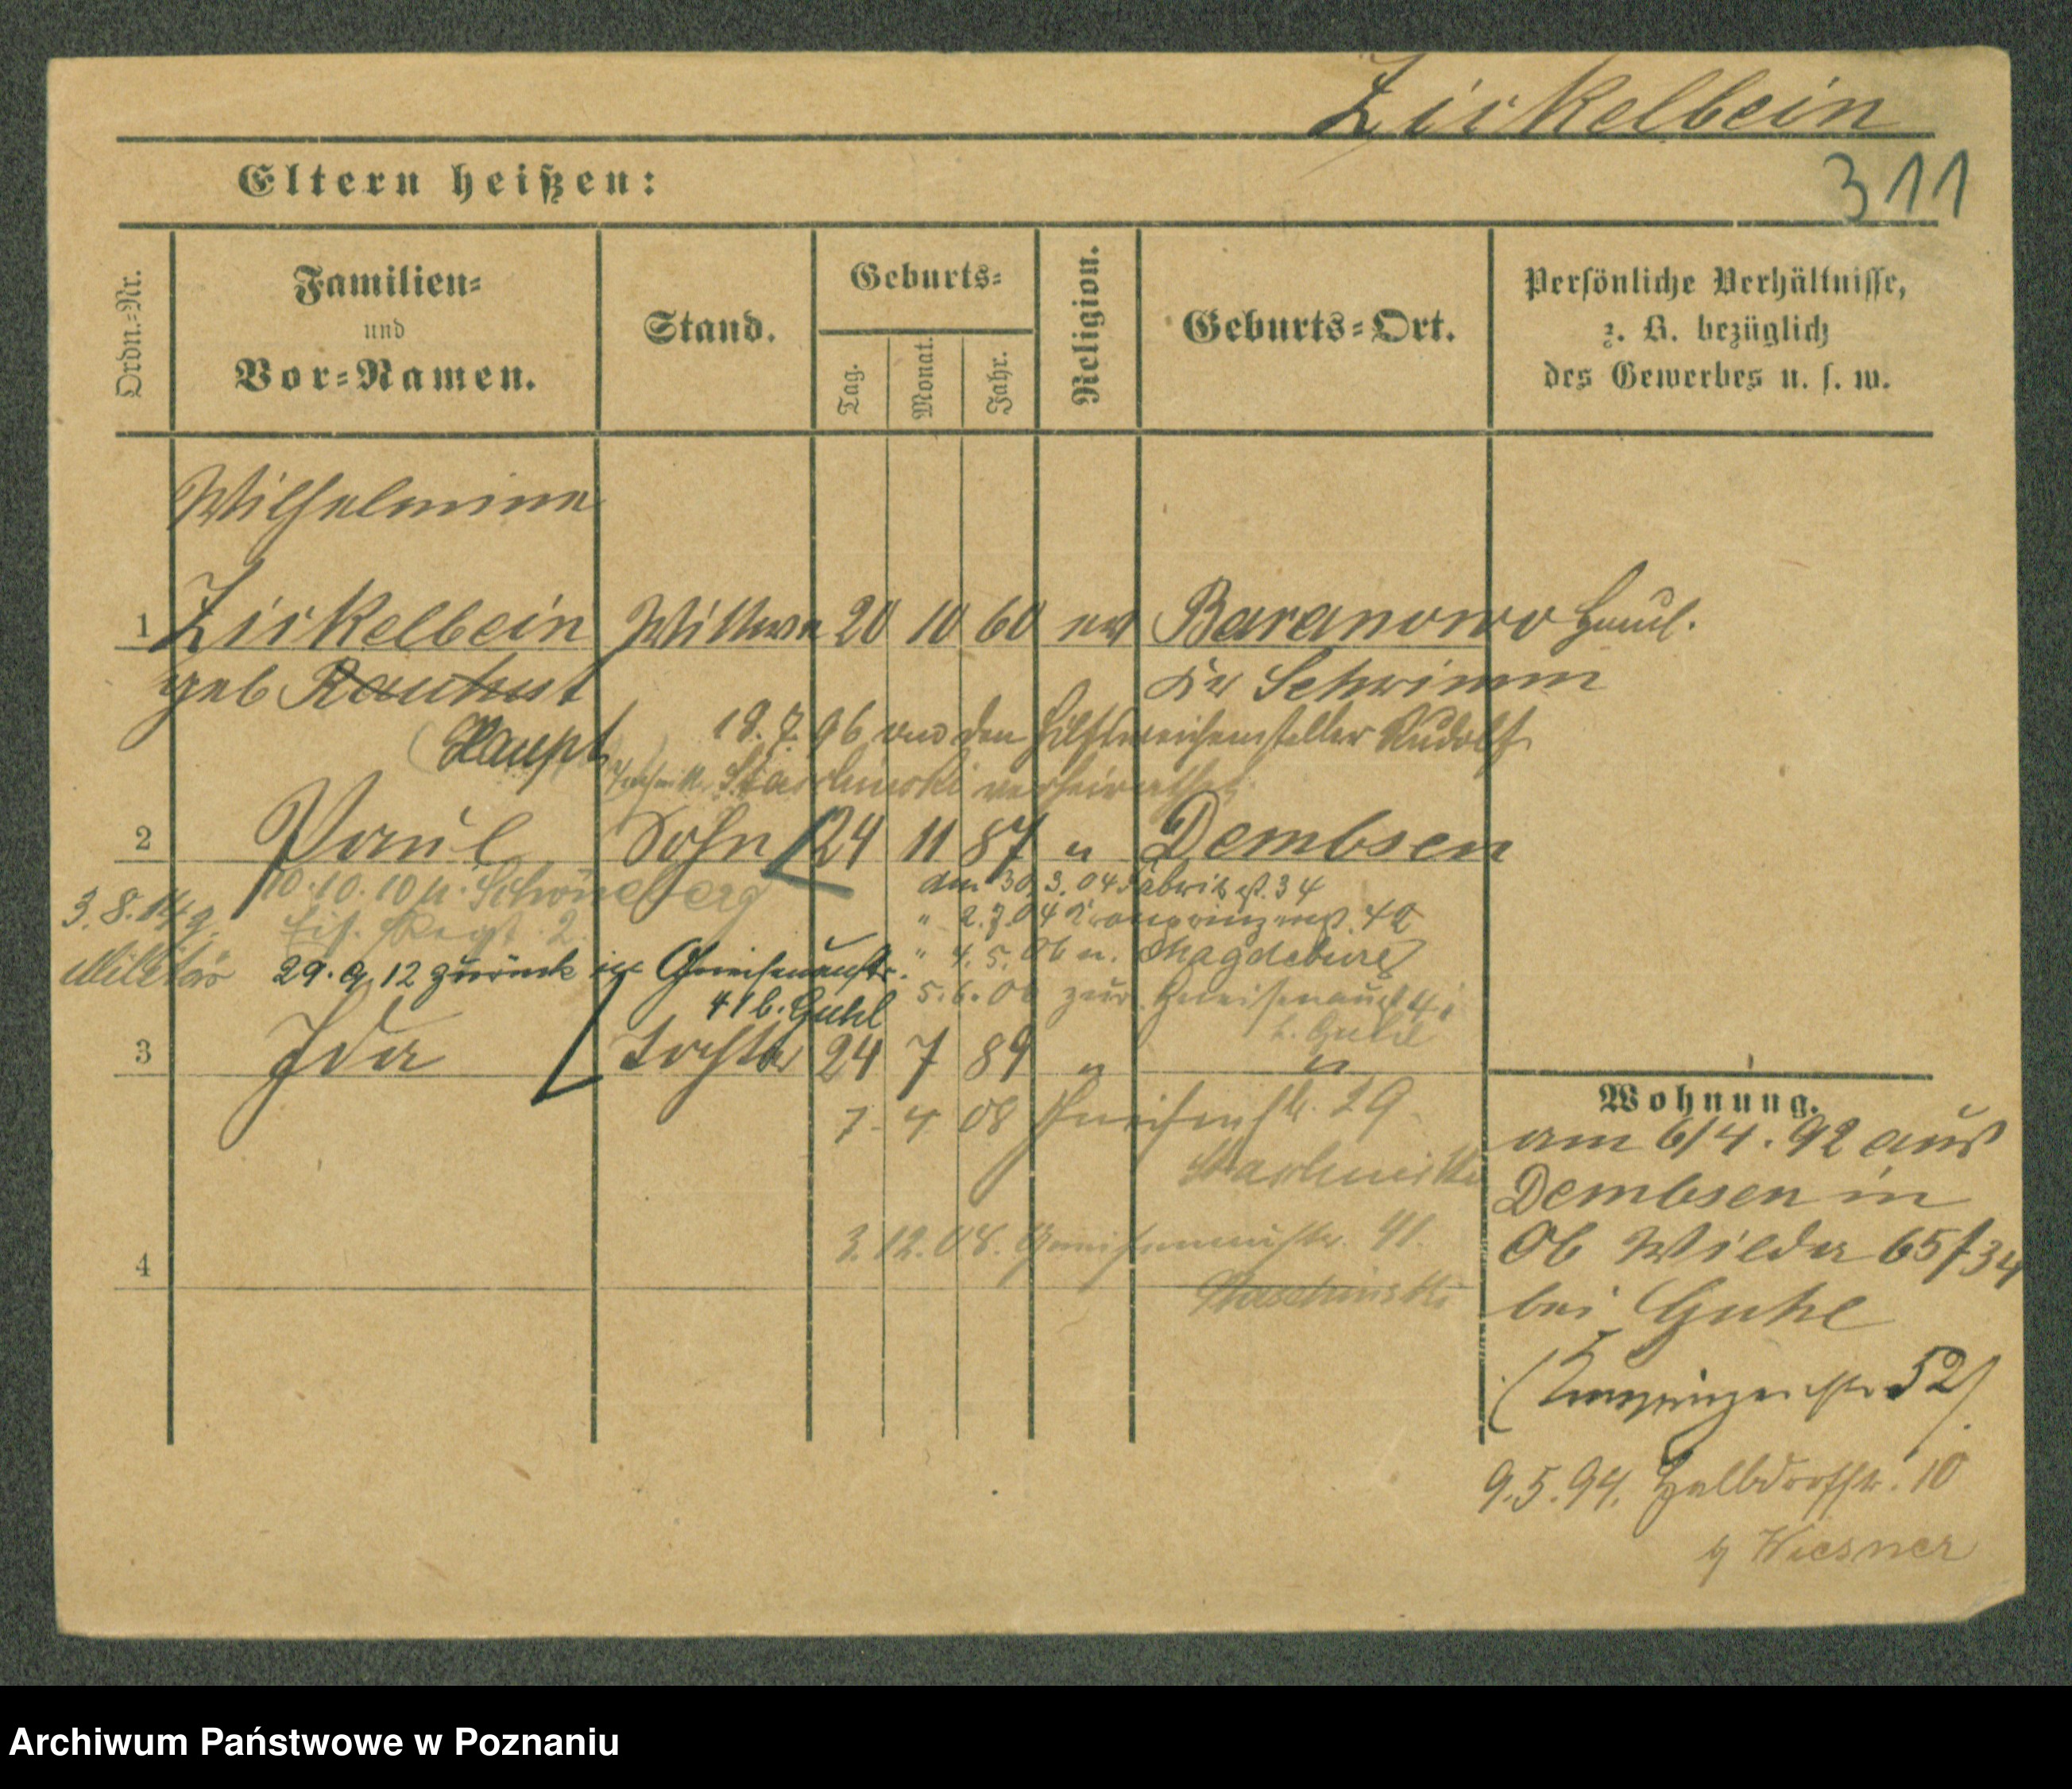 Zirkelbein
311
Eltern heißen:
Ordn.-Nr.
Familien-
und
Vor-Namen.
Stand.
Geburts-
Tag.
Monat.
Jahr.
Religion.
Geburts-Ort.
Persönliche Verhältnisse,
z. B. bezüglich
des Gewerbes u. s. w.
Wilhelmine
1 Zirkelbein Wittwe 20 10 60 ev Baranowo Haul.
geb Rauhut Kr Schrimm
(Haupt 18.7.96 den Hilfsweichensteller Rudolf
verheirathet
2 Paul Sohn 24 11 87 " Dembsen
10.10.10 n. Schöneberg
den 30.3.04 Fabrikst. 34
3.8.14 z.
Eis. Regt. 2.
" 2.7.04 Kronprinzenst. 40
Militär
29.9.12 zurück Gneisenaustr.
" 4.5.06 n. Magdeburg
41 b. Guhl
5.6.06 zur. Gneisenaust 41
b. Guhl
3 Ida Tochter 24 7 89 " "
7. 4 08 29
3.12.08. Gneisenaustr. 41.
4
Wohnung.
am 6/4. 92 aus
Dembsen in
Ob Wilda 65/34
bei Guhl
(Kronprinzenstr 52)
9.5.94. Halbdorfstr. 10
b Wiesner
Archiwum Państwowe w Poznaniu